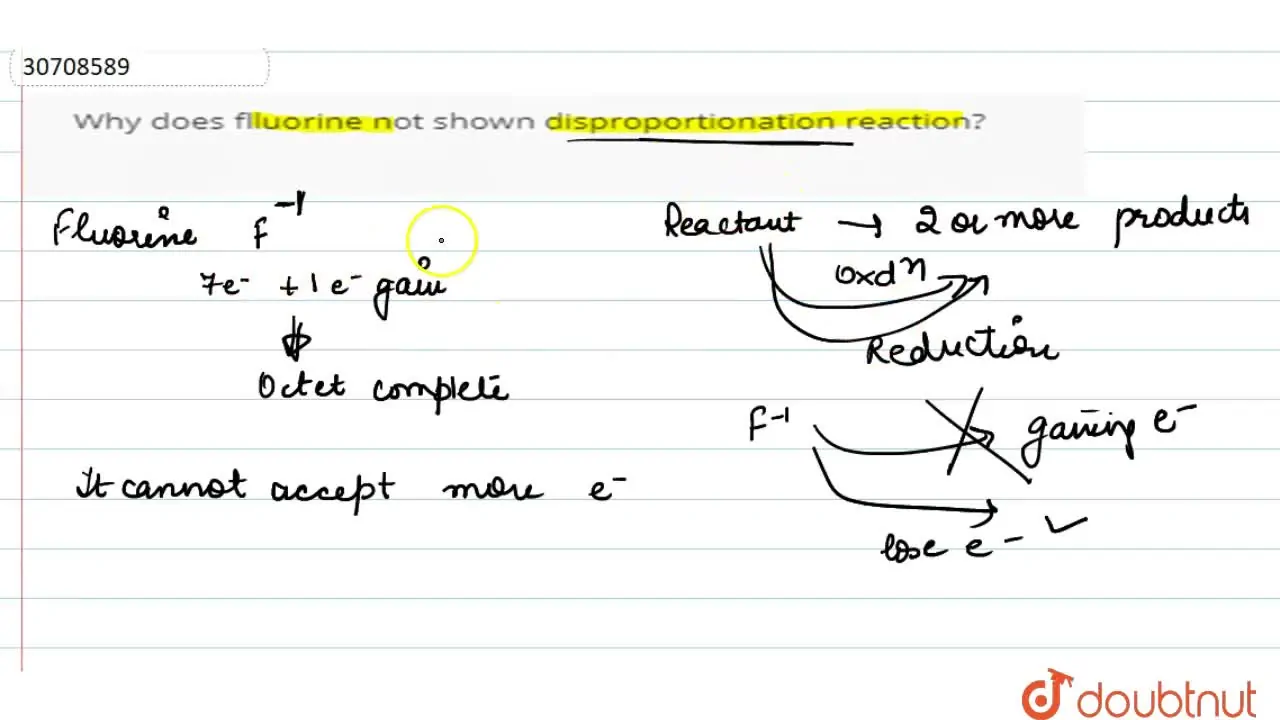 30708589
Why does flluorine not shown disproportionation reaction?
Fluorine F⁻¹
7e⁻ + 1 e⁻ gain
Octet complete
It cannot accept more e⁻
Reactant → 2 or more products
oxdⁿ
Reduction
F⁻¹
gaining e⁻
lose e⁻ ✓
doubtnut